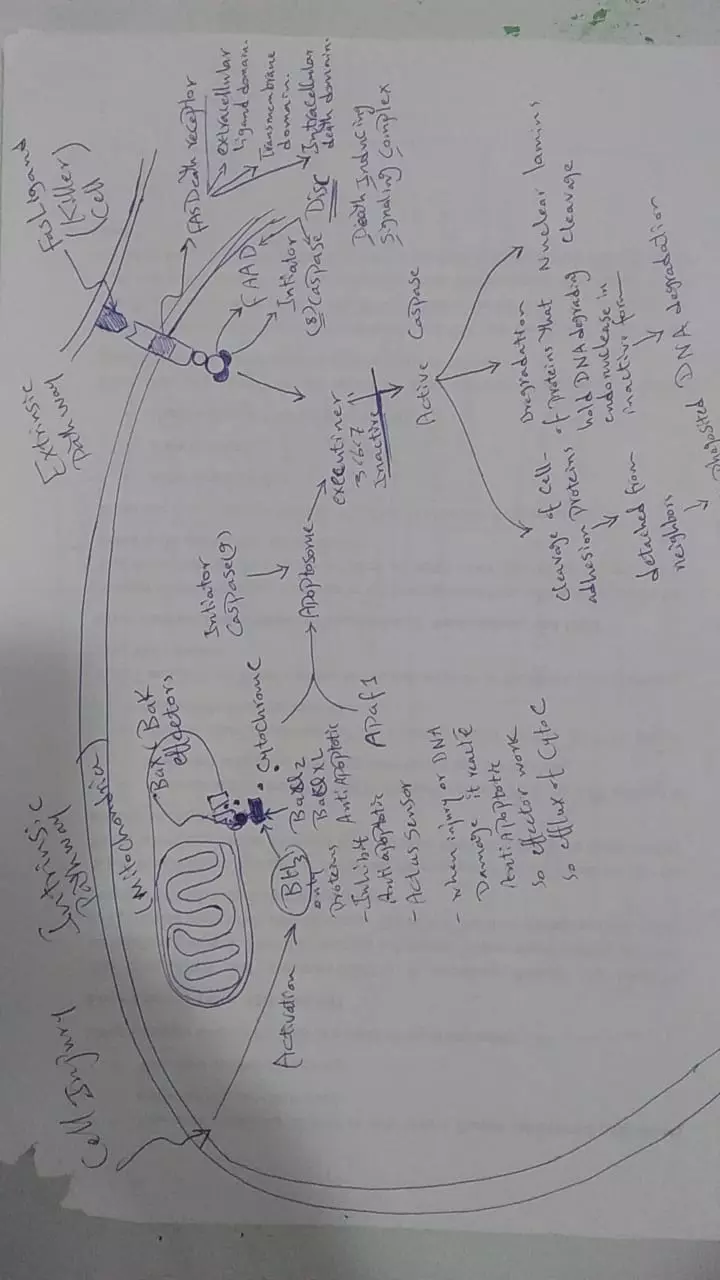 Cell Injury
Intrinsic
Pathway
(Mitochondria)
Bax / Bak
effectors
Activation
BH3
only
proteins
- Inhibit
Antiapoptotic
- Act as sensor
- when injury or DNA
Damage it reacte
Anti Apoptotic
so effector work
so efflux of Cyto C
AntiApoptotic
Cytochrome C
APaf1
Intiator
Caspase (9)
Apoptosome
Extrinsic
Pathway
FasLigand
(Killer)
Cell
FAS Death receptor
extracellular
ligand domain.
Transmembrane
domain.
Intracellular
death domain.
FAAD
Intiator
(8) Caspase
Disc
Death Inducing
Signaling Complex
executiner
3 6 & 7
Inactive
Active Caspase
Cleavage of Cell-
adhesion proteins
detached from
neighbors
Degradation
of proteins that
hold DNA degrading
endonuclease in
inactive form
DNA degradation
Nuclear lamins
cleavage